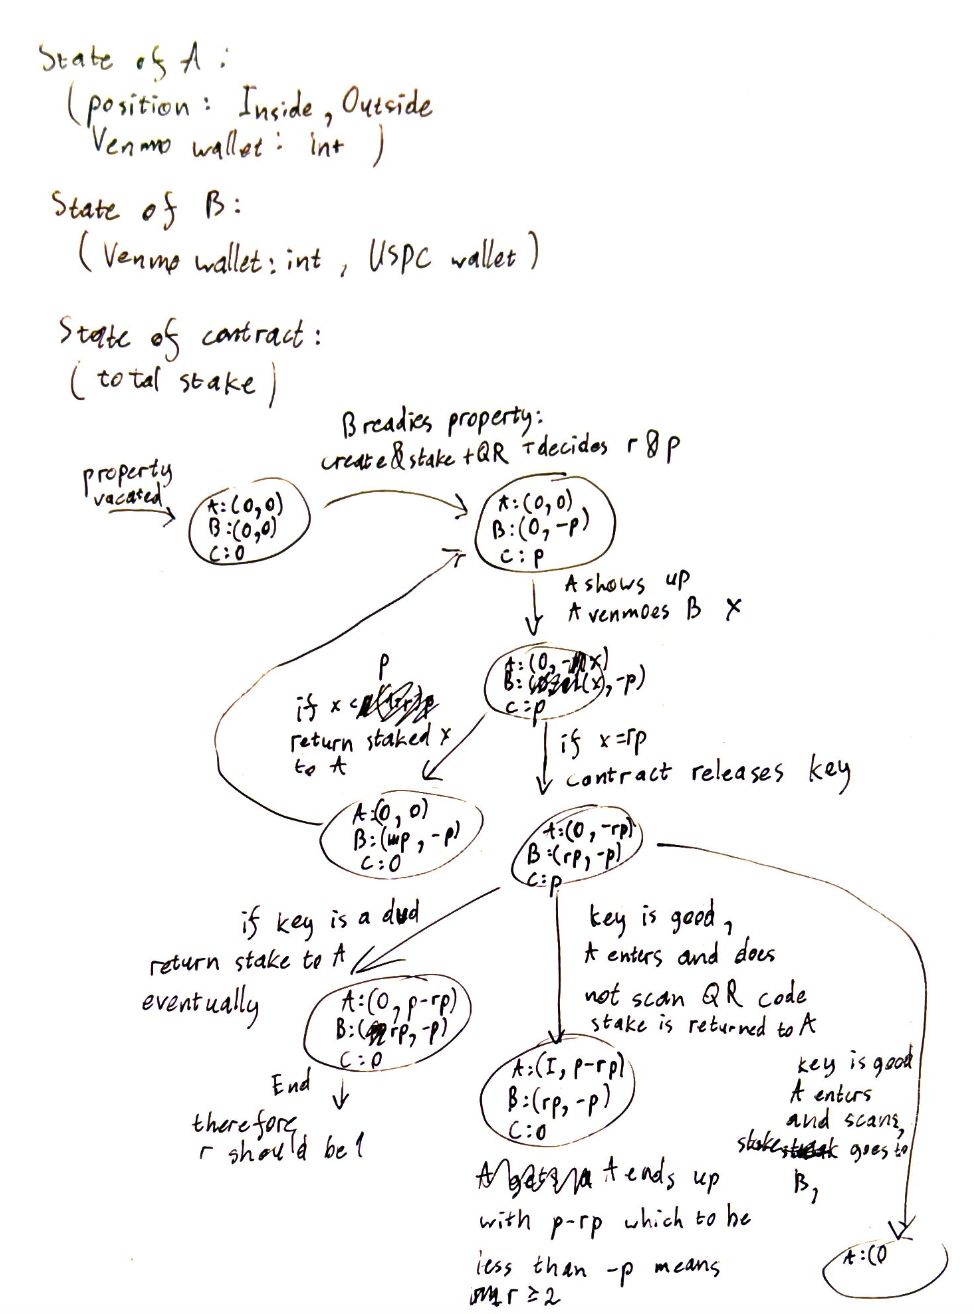 State of A:
(position: Inside, Outside
Venmo wallet: int )
State of B:
(Venmo wallet: int , USPC wallet)
State of contract:
(total stake)
B readies property:
create & stake + QR + decides r & p
property
vacated
A:(0,0)
B:(0,0)
C:0
A:(0,0)
B:(0,-p)
C:p
A shows up
A venmoes B X
A:(0,-x)
B:(x),-p)
C:p
p
if x <
return staked x
to A
if x=rp
contract releases key
A:(0,0)
B:(p,-p)
C:0
A:(0,-rp)
B:(rp,-p)
C:p
if key is a dud
return stake to A
eventually
key is good,
A enters and does
not scan QR code
stake is returned to A
A:(0,p-rp)
B:(rp,-p)
C:0
End
therefore
r should be 1
A:(I,p-rp)
B:(rp,-p)
C:0
key is good
A enters
and scans,
stake goes to
B,
A ends up
with p-rp which to be
less than -p means
r ≥ 2
A:(0